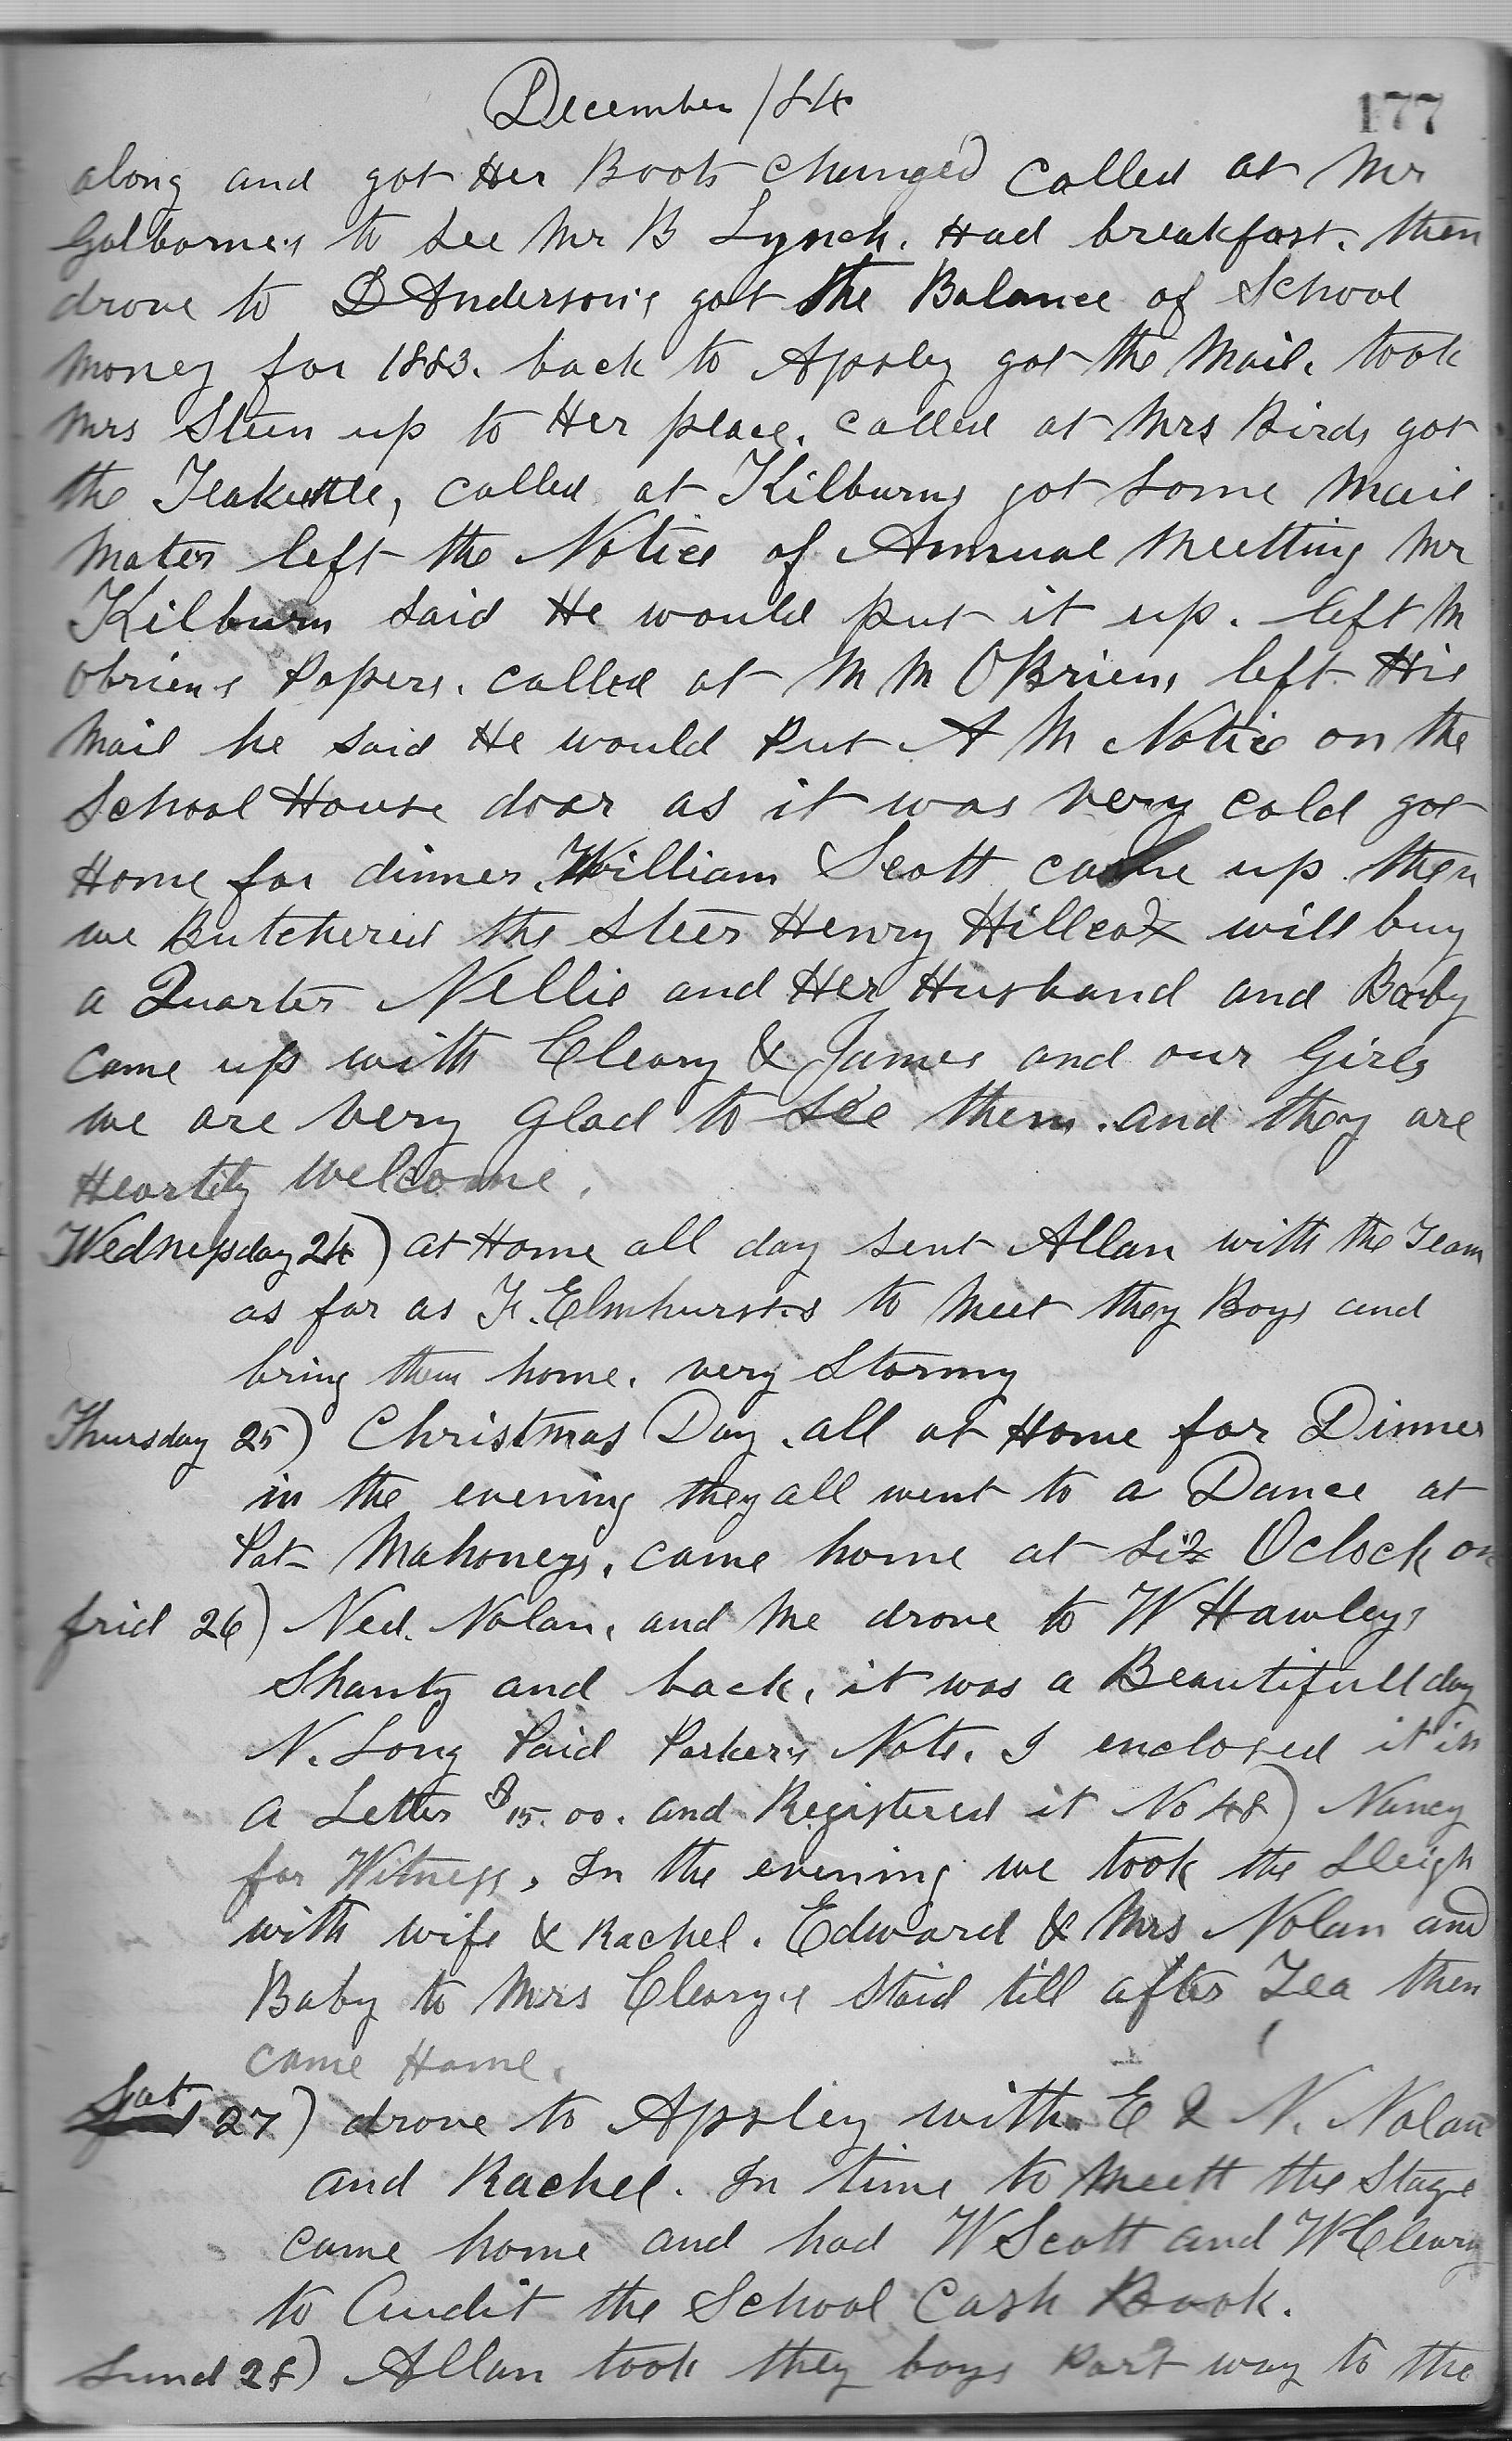 December /84
177
along and got Her Boots changed called at Mr
Golborne's to see Mr B Lynch. Had breakfast. then
drove to D Anderson's got the Balance of School
money for 1883. back to Apsley got the Mail. took
Mrs Steen up to Her place. called at Mrs Birds got
the Teakettle, called at Kilburns got some Mail
Mater left the Notice of Annual Meetting Mr
Kilburn said He would put it up. left M
Obriens Papers. called at M M OBriens left His
Mail he said He would Put A M Notice on the
School House door as it was very cold got
Home for dinner. William Scott came up then
we Butchered the Steer Henry Hillcox will buy
a Quarter Nellie and Her Husband and Baby
came up with Cleary & James and our Girls
we are very glad to see them. and they are
Heartily Welcome.
Wednesday 24) at Home all day sent Allan with the Team
as far as F. Elmhursts to Meet they Boys and
bring them home. very Stormy
Thursday 25) Christmas Day. all at Home for Dinner
in the evening they all went to a Dance at
Pat Mahoneys. came home at six Oclock on
frid 26) Ned. Nolan. and Me drove to W Hawleys
Shanty and back. it was a Beautifull day
N. Long Paid Parker's Note. I enclosed it in
a Letter $15.00. and Registered it No 48) Nancy
for Witness, In the evening we took the Sleigh
with wife & Rachel. Edward & Mrs Nolan and
Baby to Mrs Cleary's Staid till after Tea then
came Home.
Sat 27) drove to Apsley with E & N. Nolan
and Rachel. In time to Meett the Stage
came home and had W Scott and W Cleary
to Audit the School Cash Book.
Sund 28) Allan took they boys Part way to the